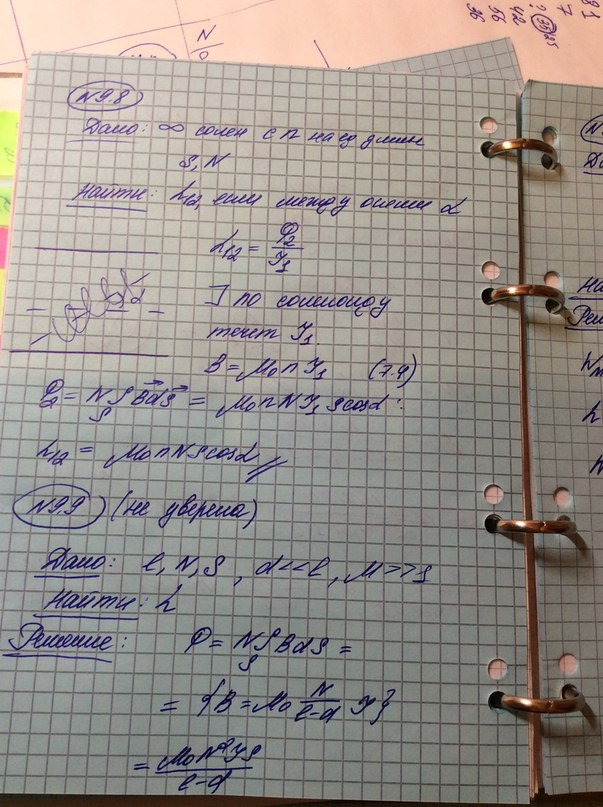 N9.8
Дано: ∞ солен с n на ед длин
S, N
Найти: L₁₂, если между осями α
L₁₂ = Φ₂/I₁
] по соленоиду
течет I₁
B = μ₀nI₁ (7.9)
Φ₂ = N∫_S B⃗dS⃗ = μ₀nNI₁Scosα
L₁₂ = μ₀nNScosα //
N9.9 (не уверена)
Дано: l, N, S, d<<l, μ>>1
Найти: L
Решение: Φ = N∫_S BdS =
= {B = μ₀ N/(l-d) I}
= μ₀N²IS/(l-d)
N
7
42
56
На
Решен